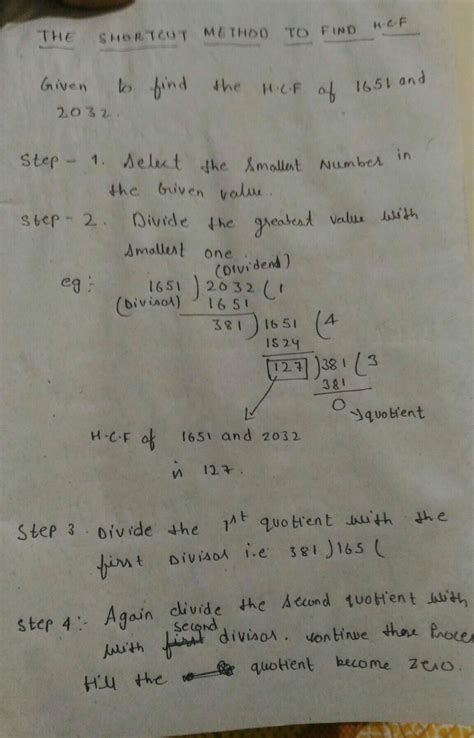 THE SHORTCUT METHOD TO FIND H.C.F
Given to find the H.C.F of 1651 and
2032.
Step - 1. Select the Smallest Number in
the Given value.
Step - 2. Divide the greatest value with
Smallest one.
(Dividend)
eg:- 1651 ) 2032 ( 1
(Divisor) 1651
381 ) 1651 ( 4
1524
127 ) 381 ( 3
381
0 → quotient
H.C.F of 1651 and 2032
is 127.
Step 3. Divide the 1st quotient with the
first Divisor i.e 381 ) 165 (
Step 4:- Again divide the second quotient with
with second divisor. continue these Proces
till the quotient become zero.